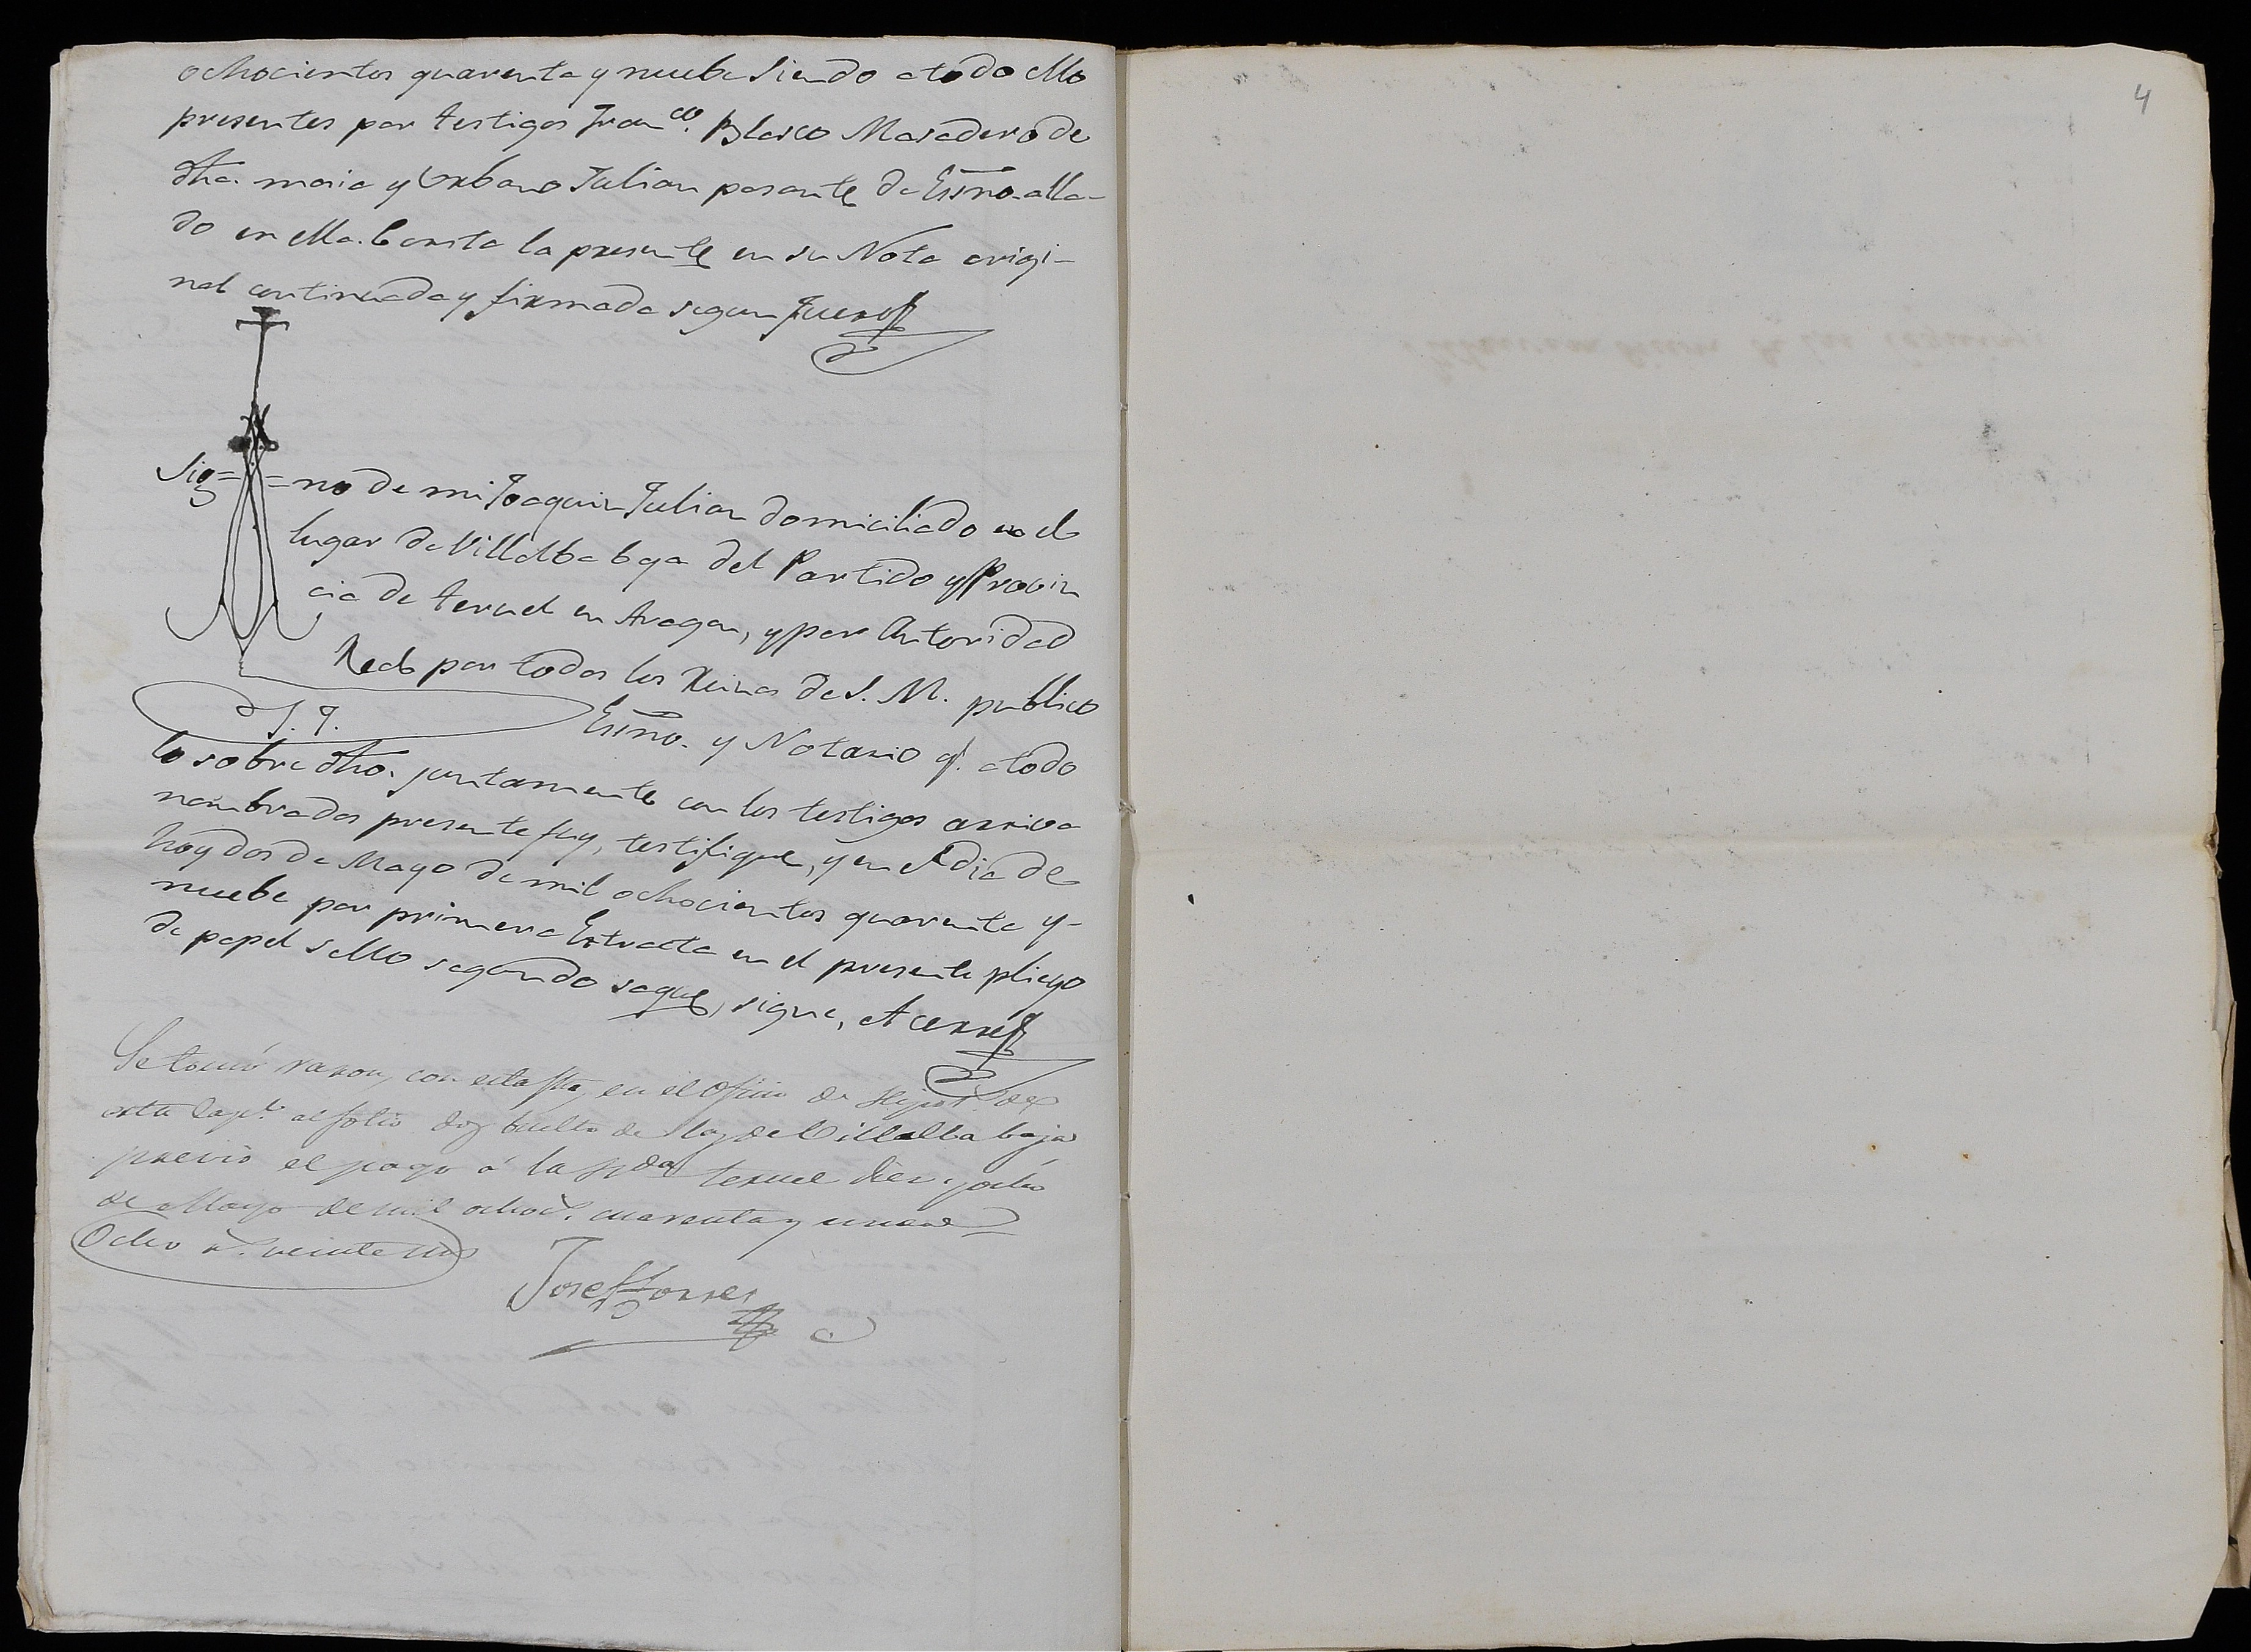 ochocientos quarenta y nuebe siendo a todo ello
presentes por testigos Fran.co Blasco Masadero de
dha. masia y Urbano Julian pasante de Essno. alla-
do en ella. Consta la presente en su Nota origi-
nal continuada y firmada segun fuero
Sig= =no de mi Joaquin Julian domiciliado en el
lugar de Villalba baja del Partido y Provin
cia de teruel en Aragon, y por Autoridad
Real por todos los Reinos de S. M. publico
Essno. y Notario q.e a todo
J. J.
lo sobre dho. juntamente con los testigos arriva
nombrados presente fuy, testifique, y en el dia de
hoy dos de Mayo de mil ochocientos quarenta y-
nuebe por primera Extracta en el presente pliego
de papel sello segundo saque, signe, et cerré
Se tomó razon, con esta fha, en el oficio de Hipot.s de
esta Cap.l al folio dos buelto de Villalba baja
previo el pago á la Teruel diez y ocho
de Mayo de mil ochoc. cuarenta y nueve
Ocho r.s veinte ms
Jose Torres
4